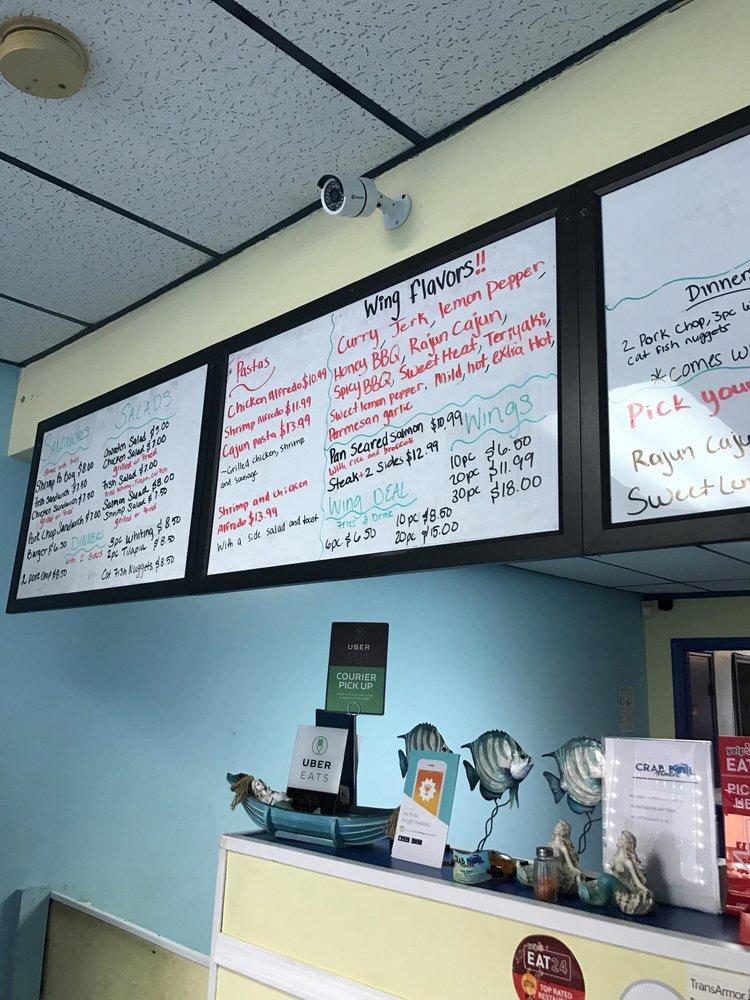 SANDWICHES
Served with fries
Shrimp Po Boy $8.00
Fish Sandwich $7.50
Chicken Sandwich $7.00
grilled or fried
Pork Chop Sandwich $7.00
Burger $6.50
DINNERS
with 2 sides
2 pork chop $8.50
SALADS
Garden Salad $5.00
Chicken Salad $7.00
grilled or fried
Fish Salad $7.00
Salmon Salad $8.00
Shrimp Salad $7.50
grilled or fried
3pc whiting $8.50
2pc Tilapia $8.50
Cat Fish Nuggets $8.50
Pastas
Chicken Alfredo $10.99
Shrimp Alfredo $11.99
Cajun pasta $13.99
~Grilled chicken, shrimp
and sausage
Shrimp and chicken
Alfredo $13.99
With a side salad and toast
Wing flavors!!
Curry, Jerk, lemon Pepper,
Honey BBQ, Rajun Cajun,
Spicy BBQ, Sweet Heat, Teriyaki,
Sweet lemon pepper, Mild, hot, extra Hot,
Parmesan garlic
Pan Seared Salmon $10.99
with rice and broccoli
Steak + 2 Sides $12.99
WING DEAL
Fries & Drink
6pc $6.50
10pc $8.50
20pc $15.00
Wings
10pc $6.00
20pc $11.99
30pc $18.00
Dinner
2 Pork Chop, 3pc w
cat fish nuggets
*comes wi
Pick your
Rajun Caju
Sweet Lem
UBER
EATS
COURIER
PICK UP
UBER
EATS
CRAB BOIL
yelp
EAT
PIC
HE
yelp
EAT24
TOP RATED
RESTAURA
TransArmor